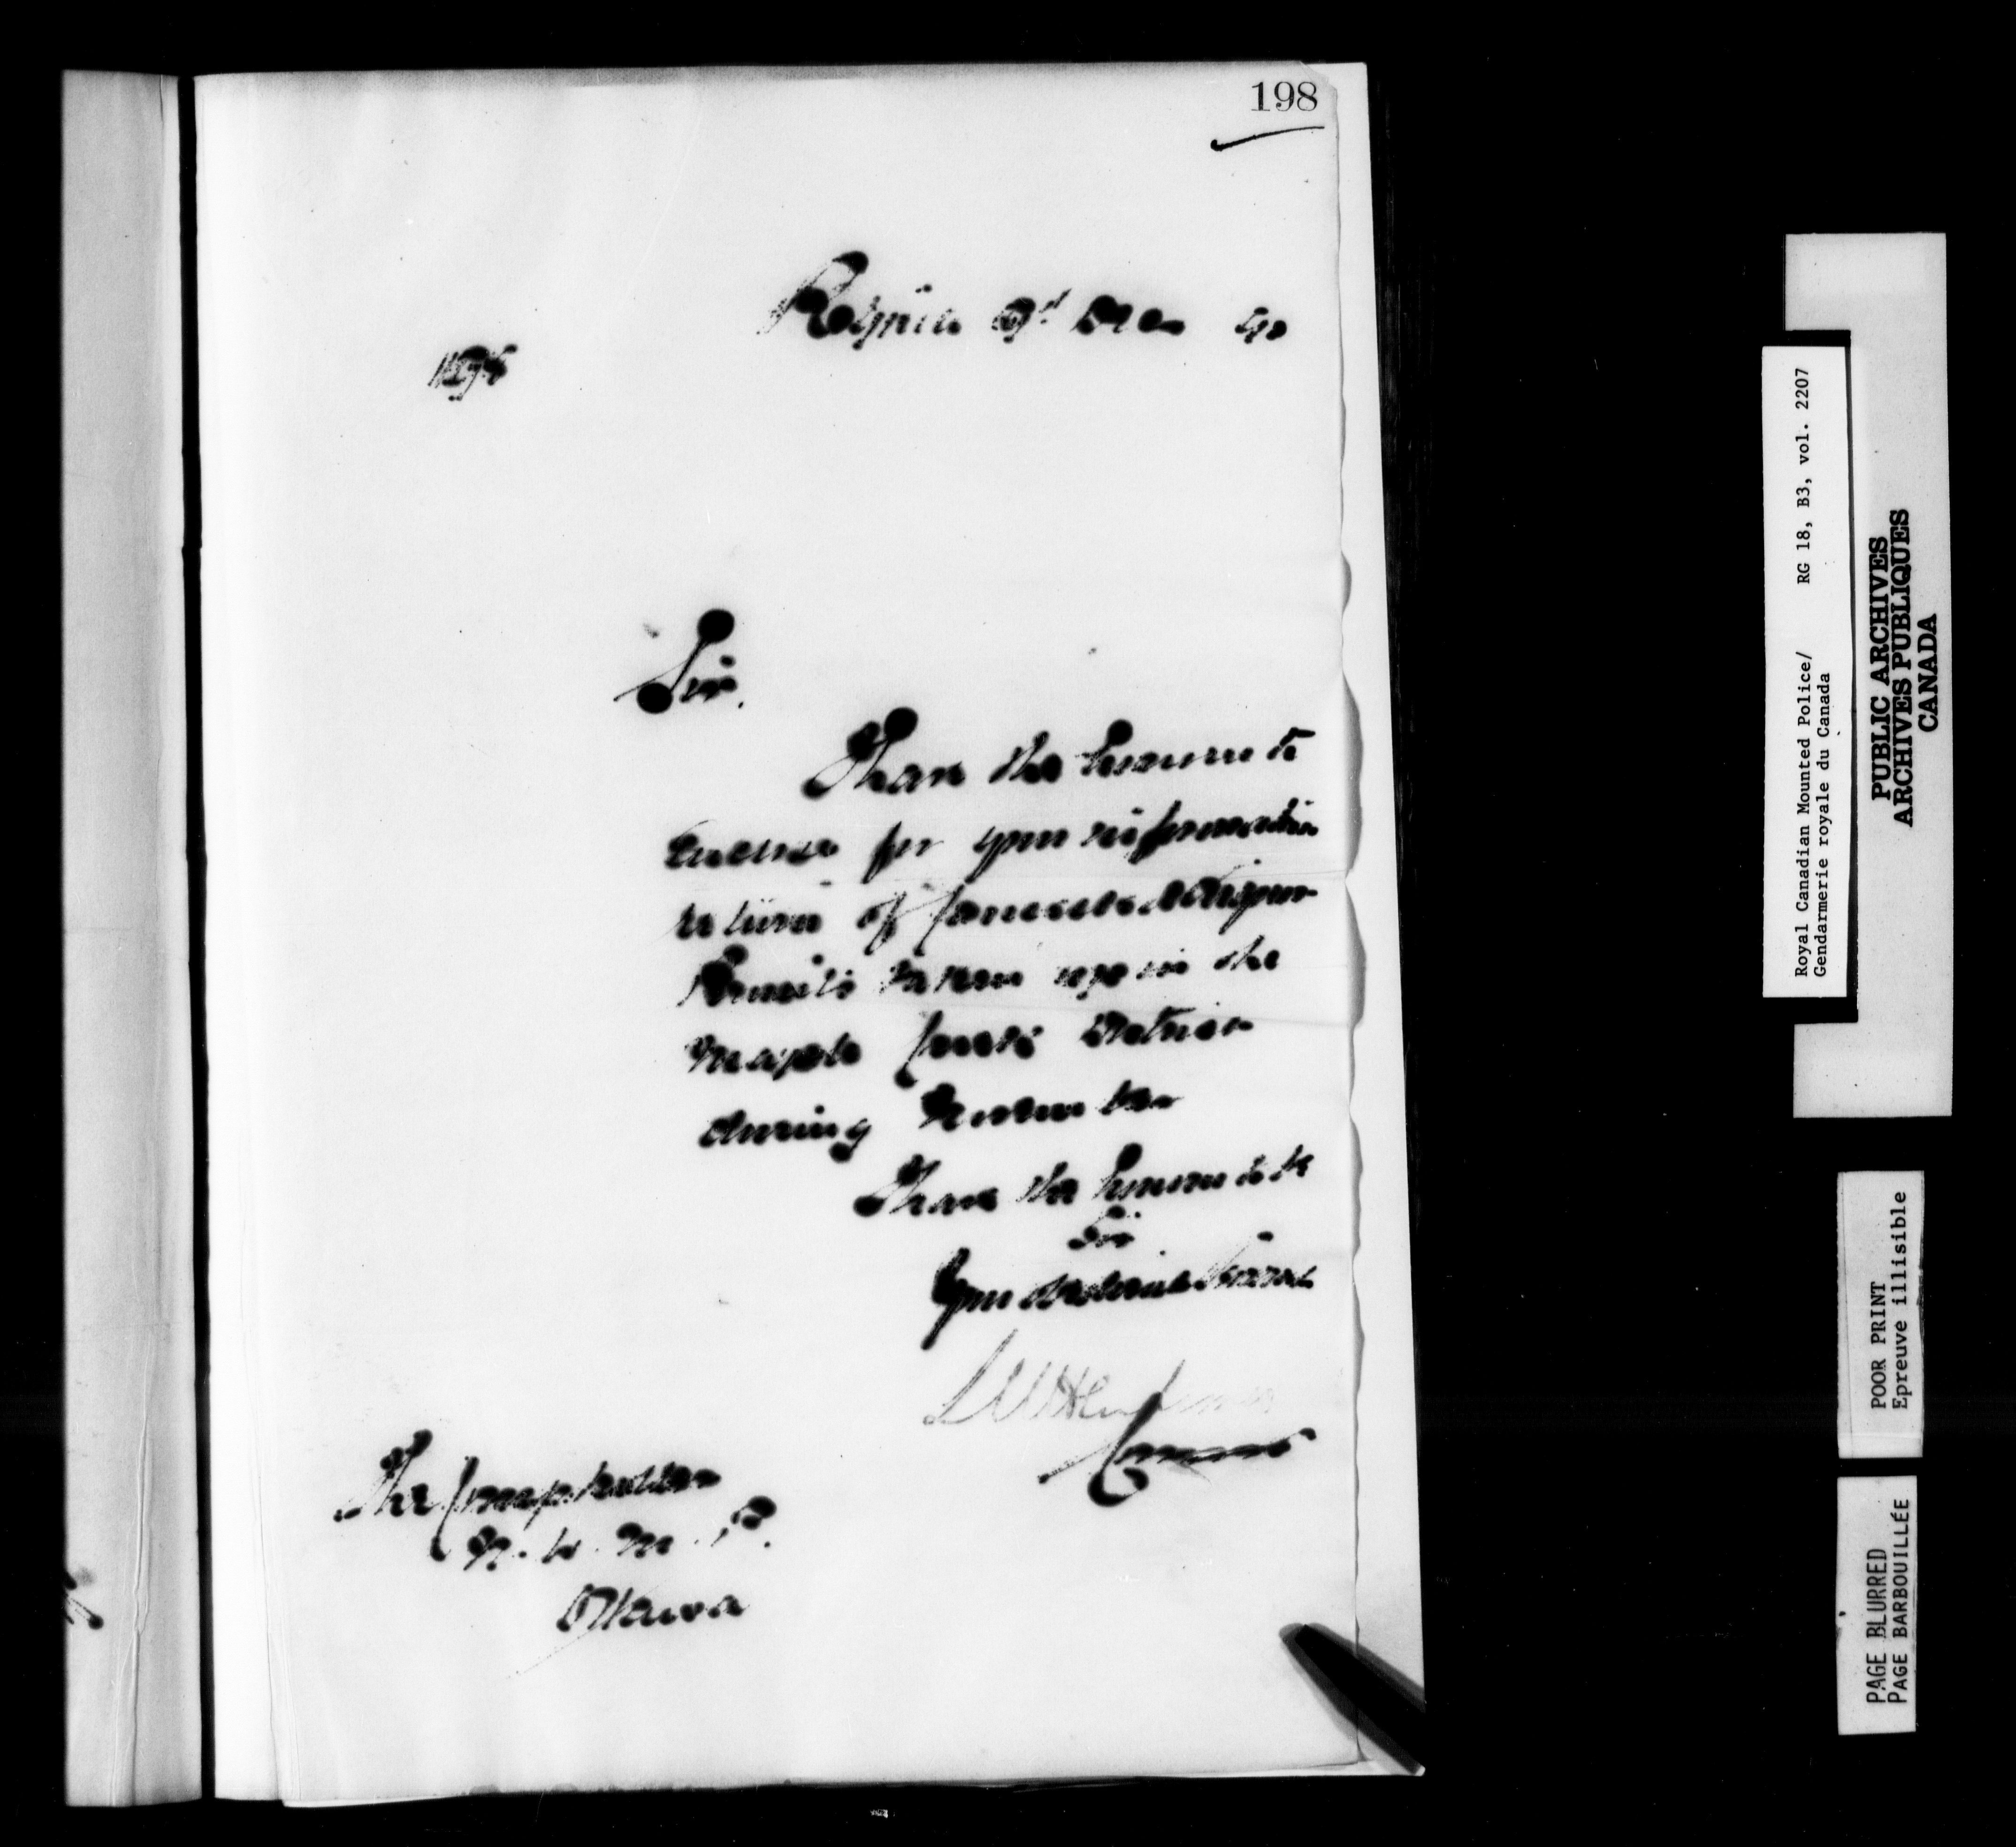 198
Regina 9th Dec 90
Sir,
I have the honour to
enclose for your information
return of Cancelled Liquor
Permits taken up in the
Maple Creek District
during November
I have the honour to be
Sir
Your obedient Servant
LWHerchmer
Commr
The Comptroller
N. W. M. P.
Ottawa
Royal Canadian Mounted Police/ RG 18, B3, vol. 2207
Gendarmerie royale du Canada
PUBLIC ARCHIVES
ARCHIVES PUBLIQUES
CANADA
POOR PRINT
Epreuve illisible
PAGE BLURRED
PAGE BARBOUILLÉE